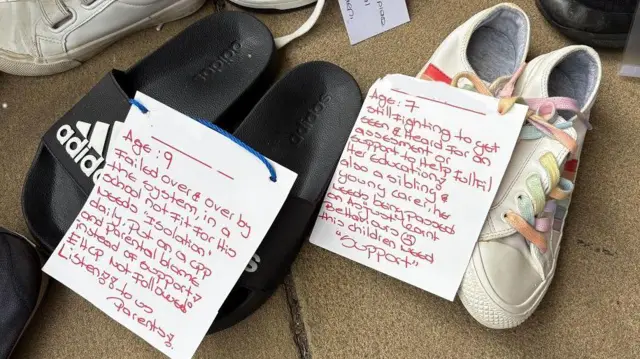 adidas
adidas
adidas
Age: 9
Failed over & over by
the system, in a
school not fit for his
needs "isolation"
daily, Put on a cpp
and parental blame
instead of support?
EHCP Not followed
Listen to us
Parents
Age: 7
still fighting to get
seen & Heard for an
assessment or
support to Help fullfill
her education?
also a sibling &
young carer, her
needs being passed
on as Just learnt
Behaviours
this children need
"Support"